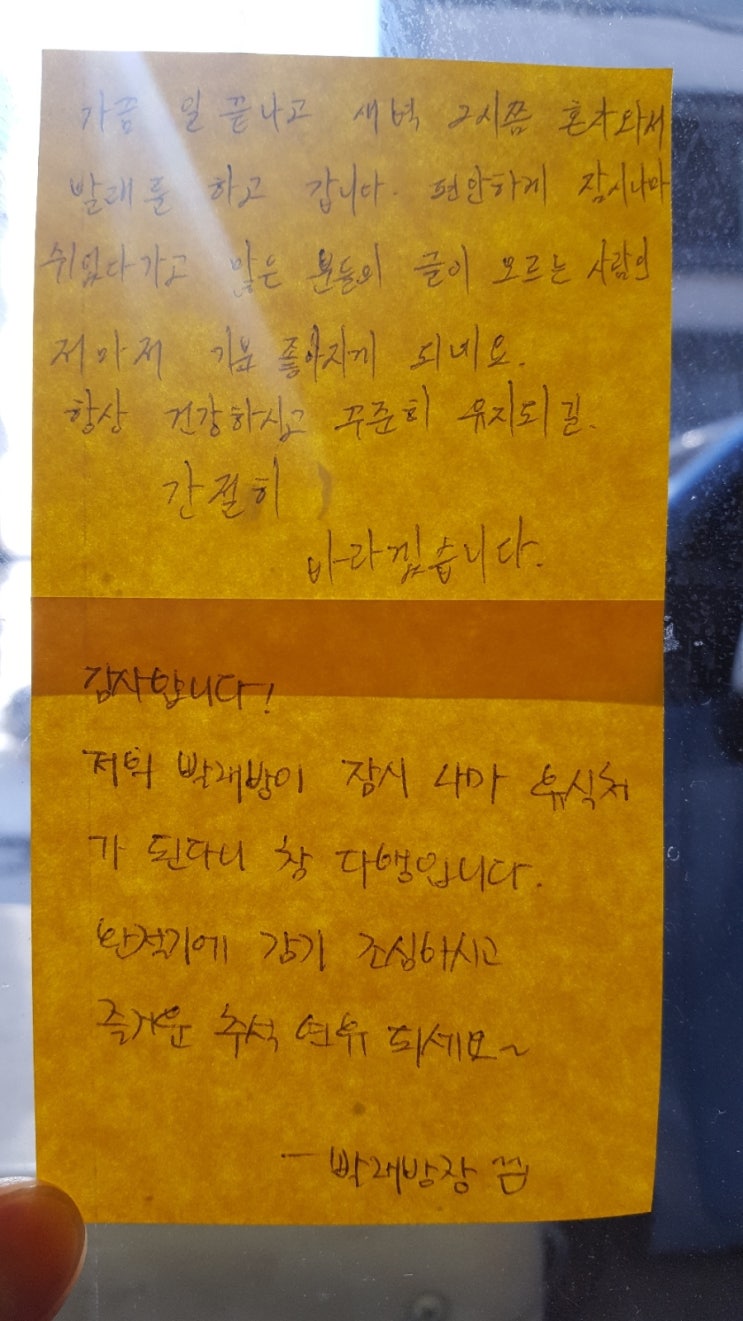 가끔 일 끝나고 새벽 2시쯤 혼자와서
빨래를 하고 갑니다. 편안하게 잠시나마
쉬었다가고 많은 분들의 글이 모르는 사람인
저마저 기분 좋아지게 되네요.
항상 건강하시고 꾸준히 유지되길.
간절히
바라겠습니다.
감사합니다!
저희 빨래방이 잠시 나마 휴식처
가 된다니 참 다행입니다.
환절기에 감기 조심하시고
즐거운 추석 연휴 되세요~
- 빨래방장 끔